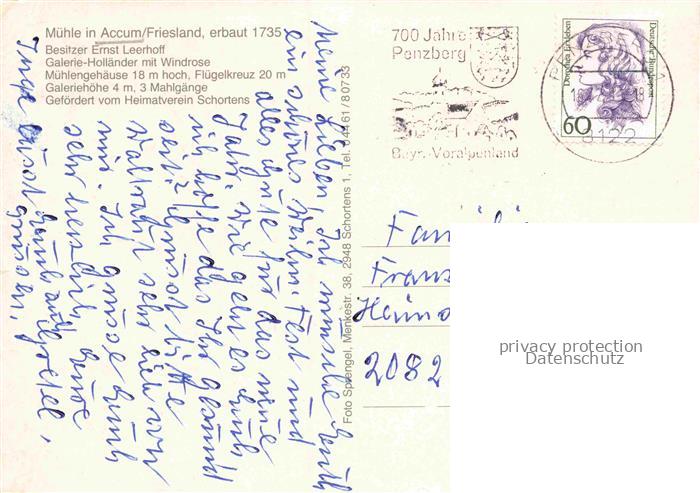 Mühle in Accum/Friesland, erbaut 1735
Besitzer Ernst Leerhoff
Galerie-Holländer mit Windrose
Mühlengehäuse 18 m hoch, Flügelkreuz 20 m
Galeriehöhe 4 m, 3 Mahlgänge
Gefördert vom Heimatverein Schortens
Meine Lieben, Ich wünsche Euch
ein schönes Weihn. Fest und
alles Gute für das neue
Jahr. Wie geht es Euch
ich hoffe das Ihr gesund
seit. Grüsst bitte
Waltraut sehr lieb von
mir. Ich grüsse Euch
sehr herzlich, Eure
Inge
grüssen.
Foto Sprengel, Menkestr. 38, 2948 Schortens 1, Tel. 04461/80733
700 Jahre
Penzberg
Bayr. Voralpenland
8122
Dorothea Erxleben
Deutsche Bundespost
60
Fam
Franz
2082
privacy protection
Datenschutz